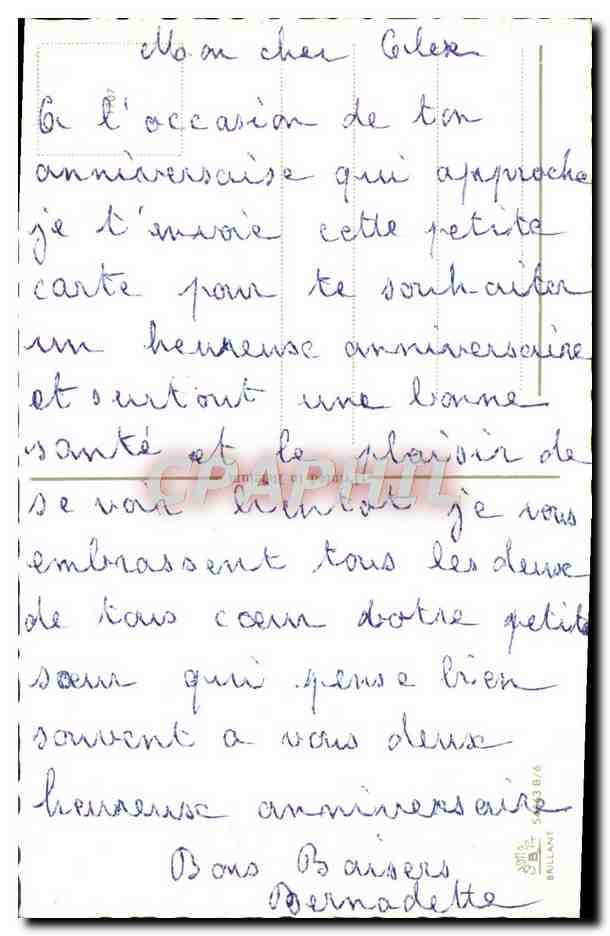 Mon cher Alex
A l'occasion de ton
anniversaise qui approche
je t'envoie cette petite
carte pour te souhaiter
un heureuse anniversaire
et surtout une bonne
santé et le plaisir de
CPAPHIL
se voir bientot je vous
embrassent tous les deux
de tous coeur votre petite
sœur qui pense bien
souvent a vous deux
heureux anniversaire
Bons Baisers
Bernadette
BRILLANT